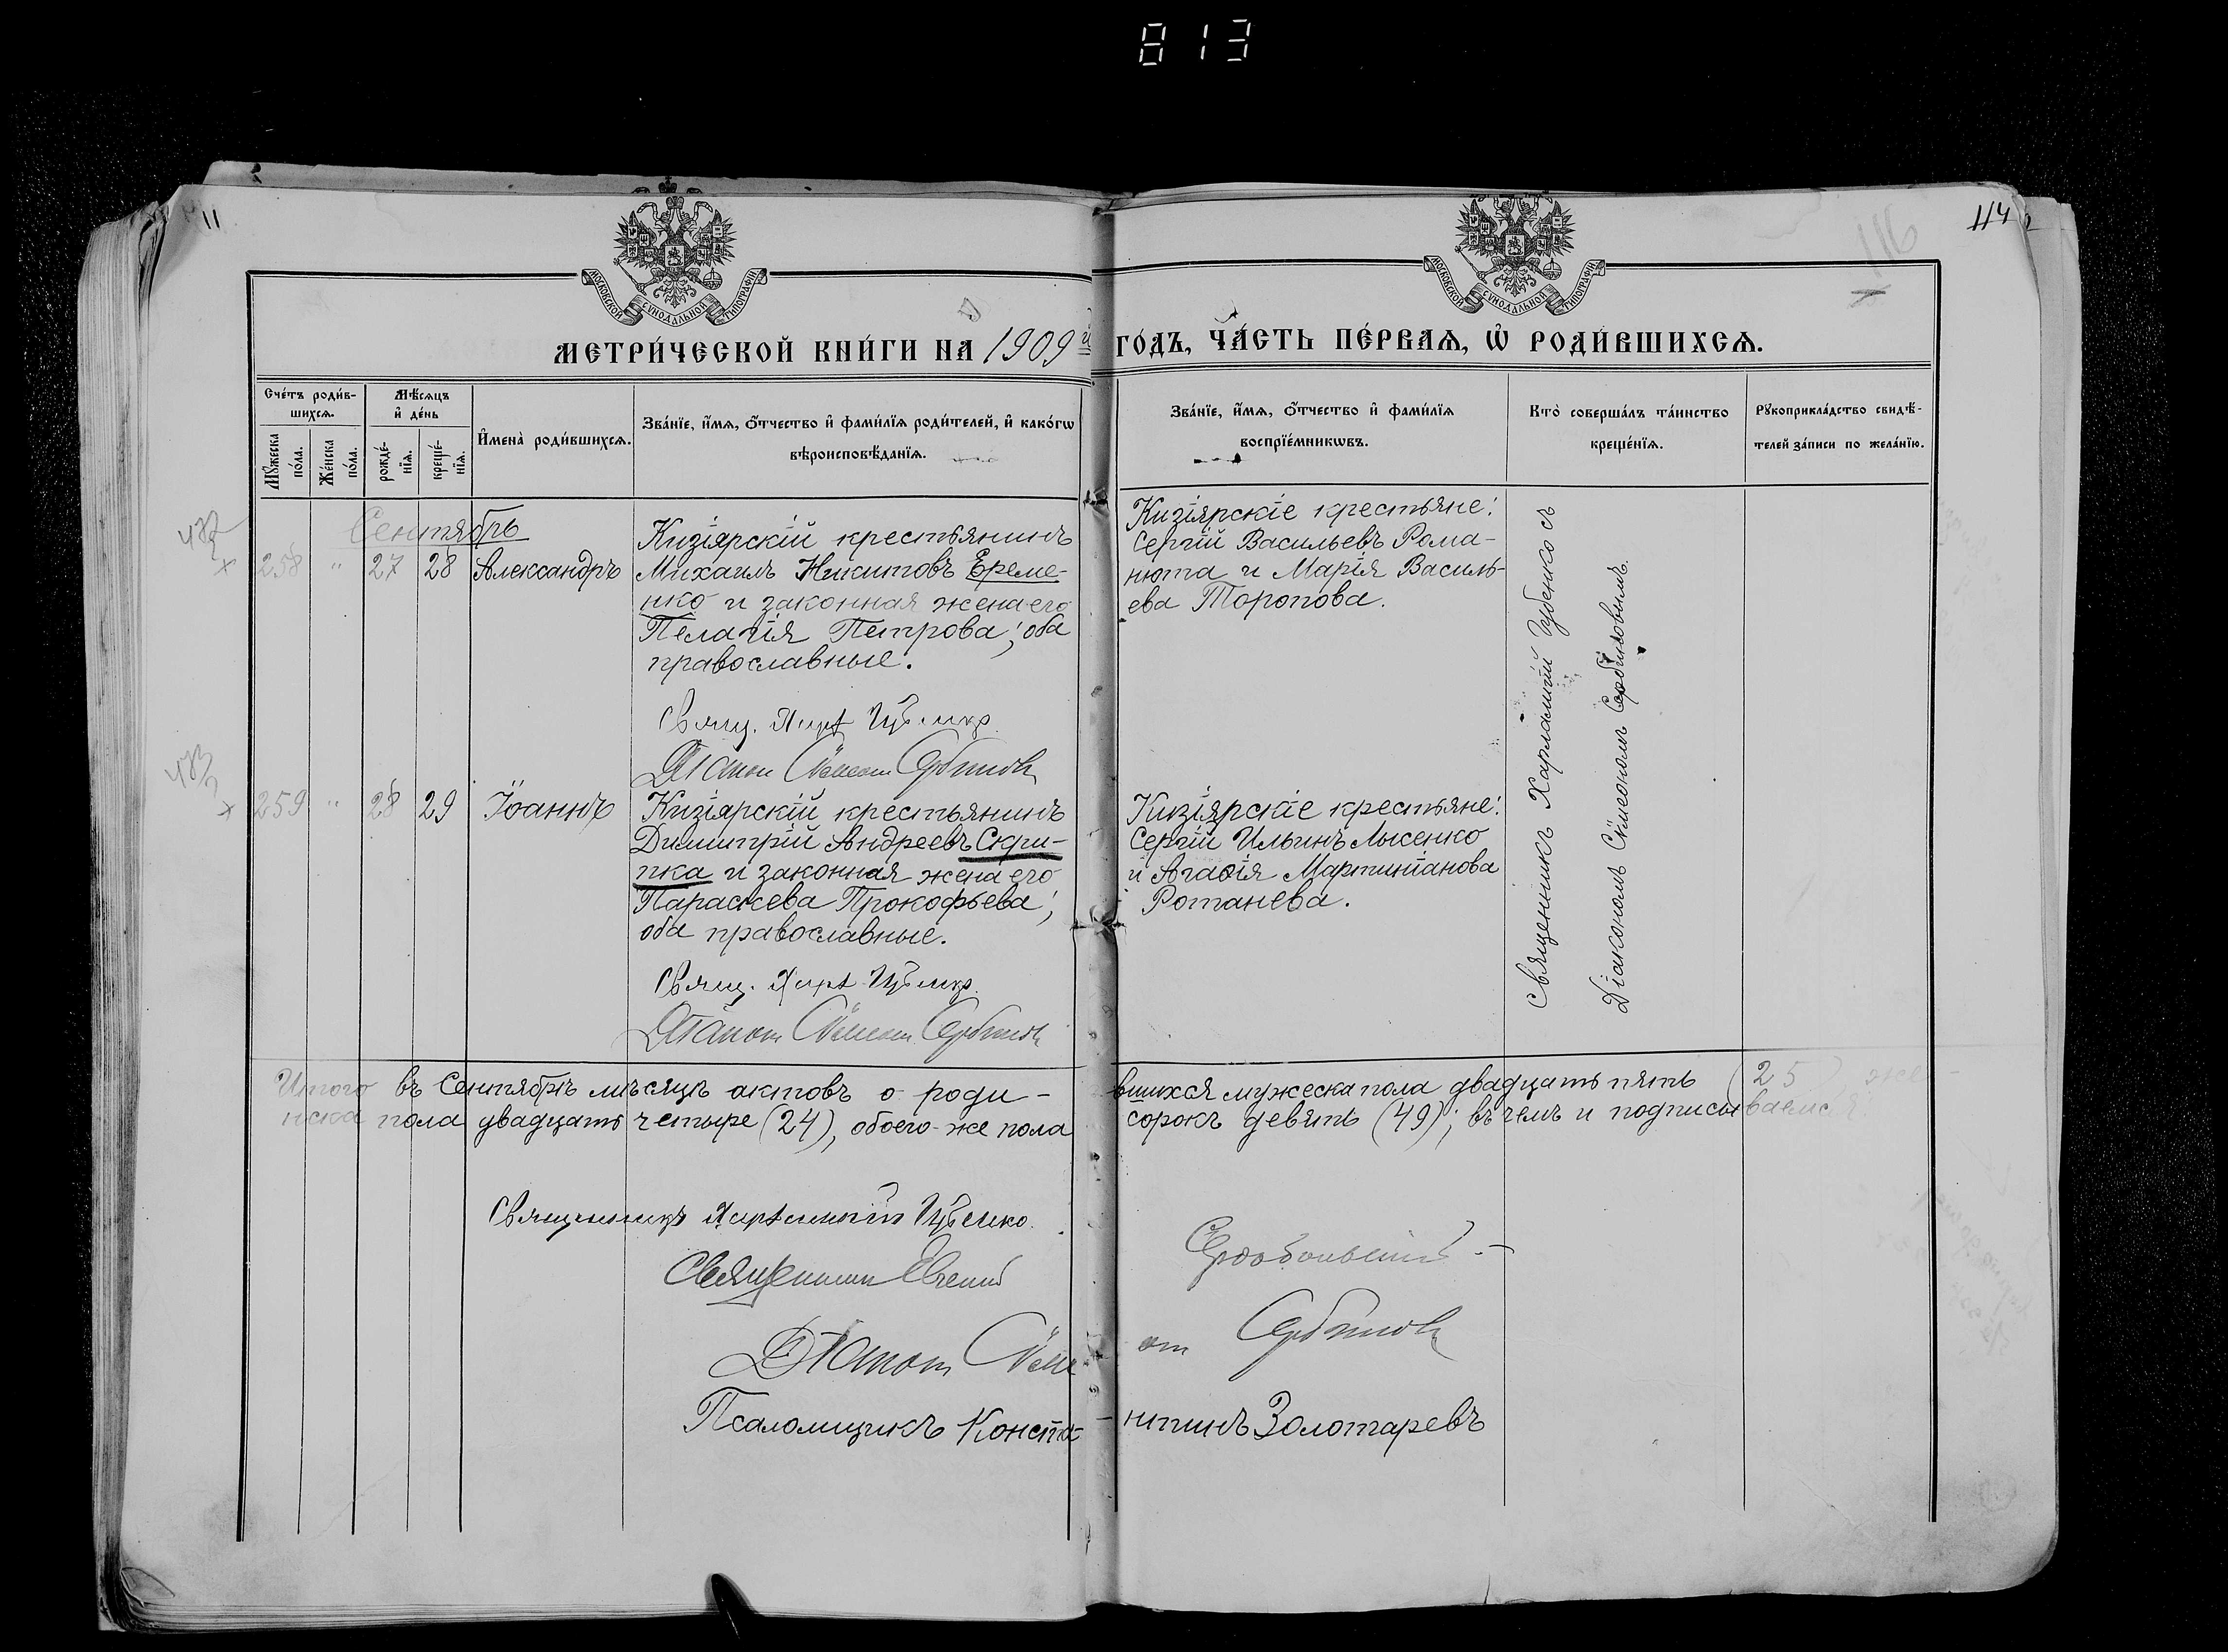 813
11
114
116
МОСКОВСКОЙ СѴНОДАЛЬНОЙ ТИПОГРАФІИ
МОСКОВСКОЙ СѴНОДАЛЬНОЙ ТИПОГРАФІИ
МЕТРИ́ЧЕСКОЙ КНИ́ГИ НА 1909 й ГО́ДЪ, ЧА́СТЬ ПЕ́РВАѦ, Ѡ҆ РОДИ́ВШИХСѦ.
Сче́тъ роди́в-
шихсѧ.
Мꙋ́жеска по́ла.
Же́нска по́ла.
Мѣ́сѧцъ и҆ де́нь
рожде́-
нїѧ.
креще́-
нїѧ.
И҆мена̀ роди́вшихсѧ.
Зва́нїе, и҆́мѧ, ѻ҆́тчество и҆ фами́лїѧ роди́телей, и҆ како́гѡ
вѣроисповѣ́данїѧ.
Зва́нїе, и҆́мѧ, ѻ҆́тчество и҆ фами́лїѧ
воспрїе́мникѡвъ.
Кто̀ соверша́лъ та́инство
креще́нїѧ.
Рꙋкоприкла́дство свидѣ́-
телей за́писи по жела́нїю.
Сентябрь
258 " 27 28 Александръ
Кизіярскій крестьянинъ
Михаилъ Никитовъ Ереме-
нко и законная жена его
Пелагія Петрова; оба
православные.
Свящ. Харл. Губенко
Діаконъ Симеонъ Сербиновъ
Кизіярскіе крестьяне:
Сергій Васильевъ Рома-
нюта и Марія Василь-
ева Торопова.
Священникъ Харлампій Губенко съ
Діакономъ Сѵмеономъ Сербиновымъ.
259 " 28 29 Іоаннъ
Кизіярскій крестьянинъ
Димитрій Андреевъ Скри-
пка и законная жена его
Параскева Прокофьева;
оба православные.
Свящ. Харл. Губенко
Діаконъ Симеонъ Сербиновъ
Кизіярскіе крестьяне:
Сергій Ильинъ Лысенко
и Агаѳія Мартиніанова
Ротанева.
Итого въ Сентябрѣ мѣсяцѣ актовъ о роди-вшихся мужеска пола двадцать пять (25) же-
нска пола двадцать четыре (24), обоего-же пола сорокъ девять (49); въ чемъ и подписываемся
Священникъ Харлампій Губенко.
Священникъ Евгеній
Діаконъ Симеонъ Сербиновъ
Псаломщикъ Конста-нтинъ Золотаревъ